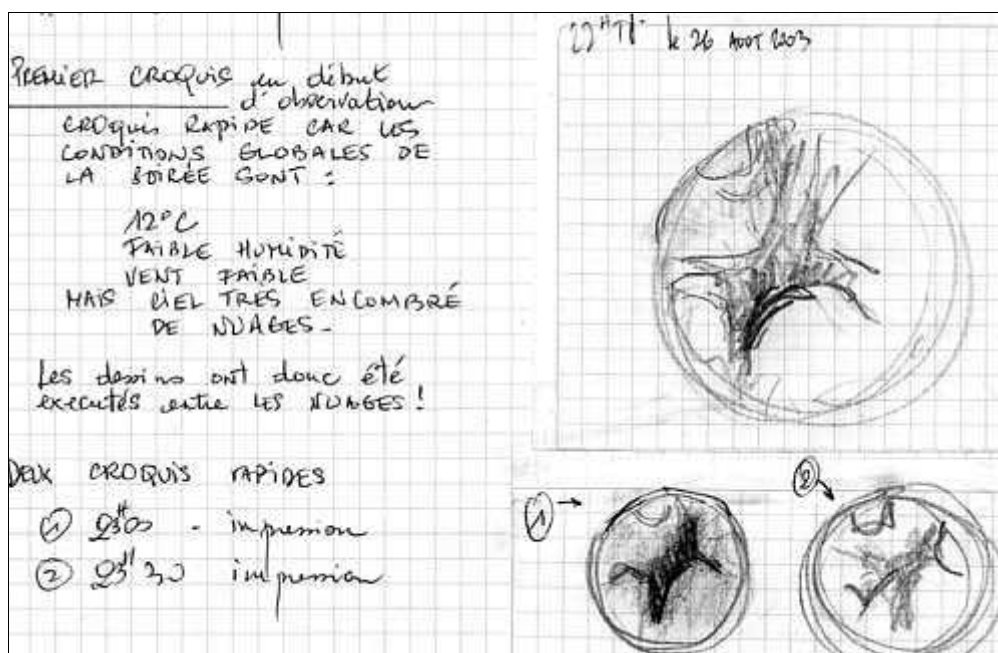 PREMIER CROQUIS en début
d'observation
CROQUIS RAPIDE CAR LES
CONDITIONS GLOBALES DE
LA SOIRÉE SONT :
12°C
FAIBLE HUMIDITÉ
VENT FAIBLE
MAIS CIEL TRÈS ENCOMBRÉ
DE NUAGES.
Les dessins ont donc été
executés entre LES NUAGES !
DEUX CROQUIS RAPIDES
① 23H00 - impression
② 23H30 impression
le 26 AOUT 2003
①
②